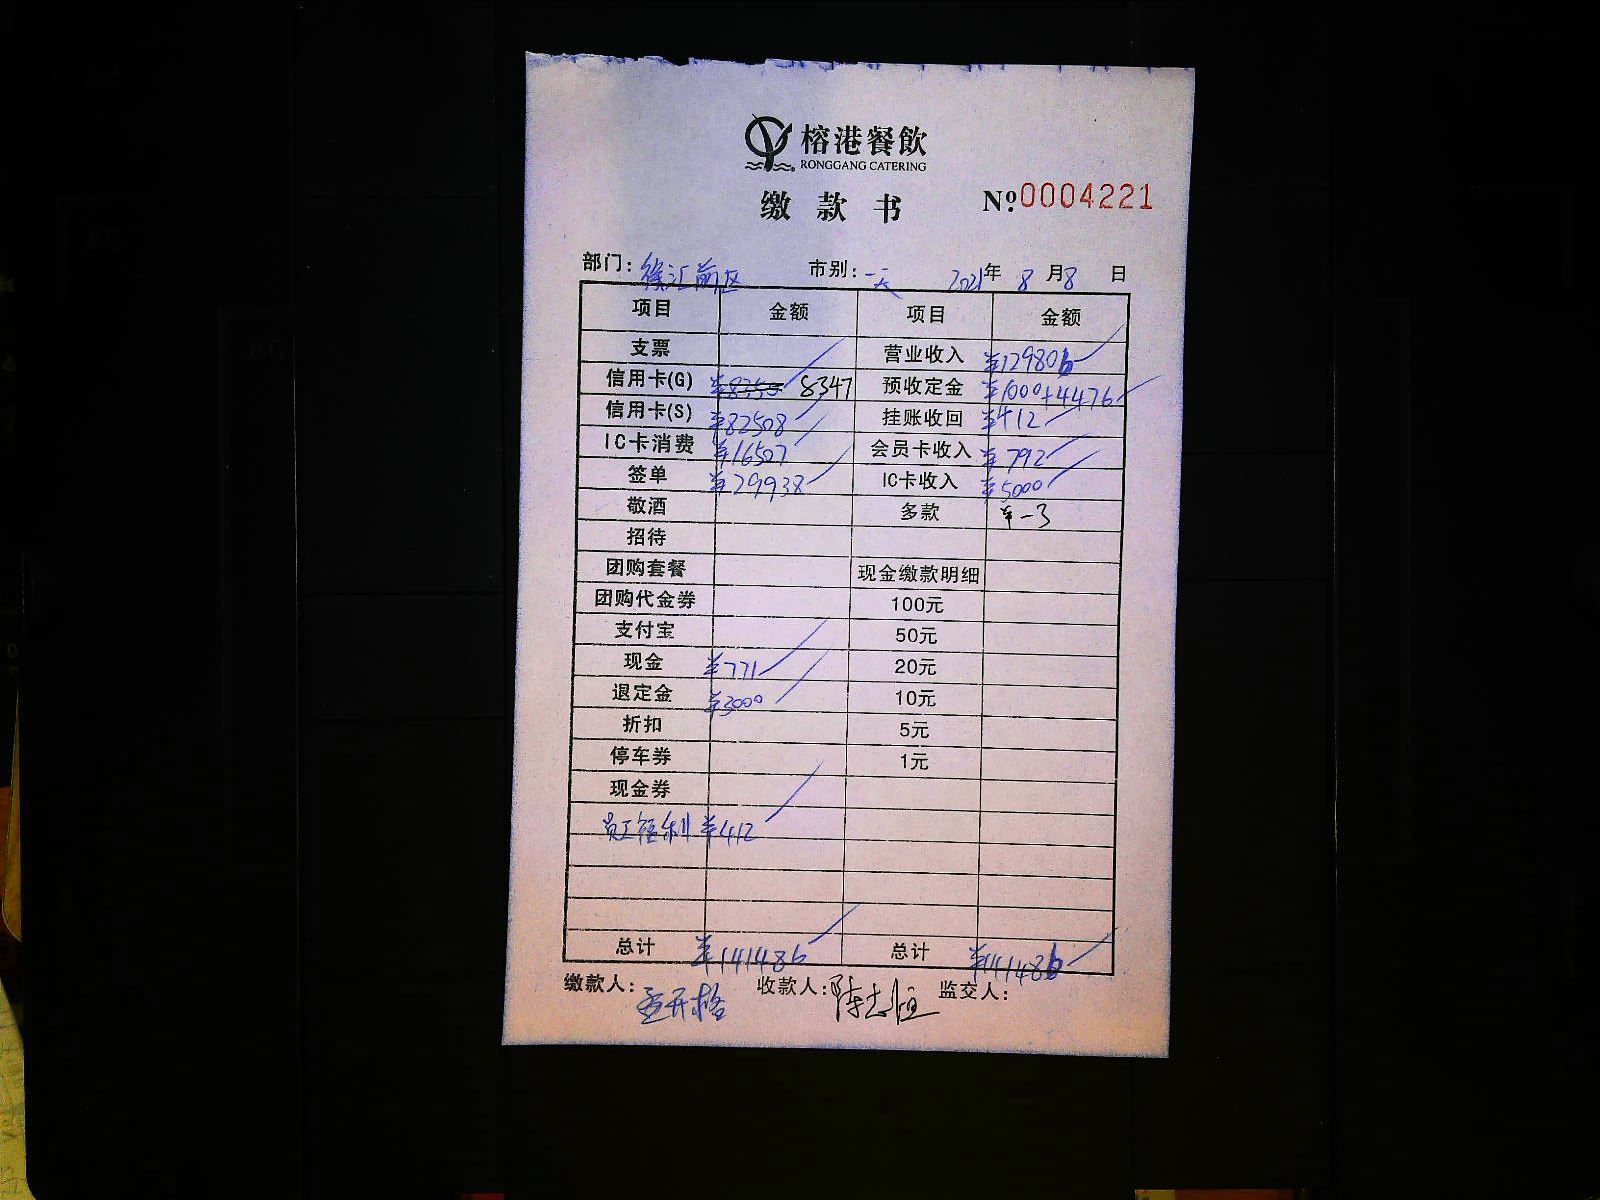 榕港餐飲
RONGGANG CATERING
缴款书 №0004221
部门: 徐汇前区 市别: 一天 2021年 8月8日
项目 金额 项目 金额
支票 营业收入 ¥129806
信用卡(G) ¥8350 8347 预收定金 ¥1000+4476
信用卡(S) ¥82508 挂账收回 ¥412
IC卡消费 ¥16507 会员卡收入 ¥792
签单 ¥29938 IC卡收入 ¥5000
敬酒 多款 ¥-3
招待
团购套餐 现金缴款明细
团购代金券 100元
支付宝 50元
现金 ¥771 20元
退定金 ¥3000 10元
折扣 5元
停车券 1元
现金券
员工福利 ¥412
总计 ¥141486 总计 ¥141486
缴款人: 收款人: 陈志恒 监交人: